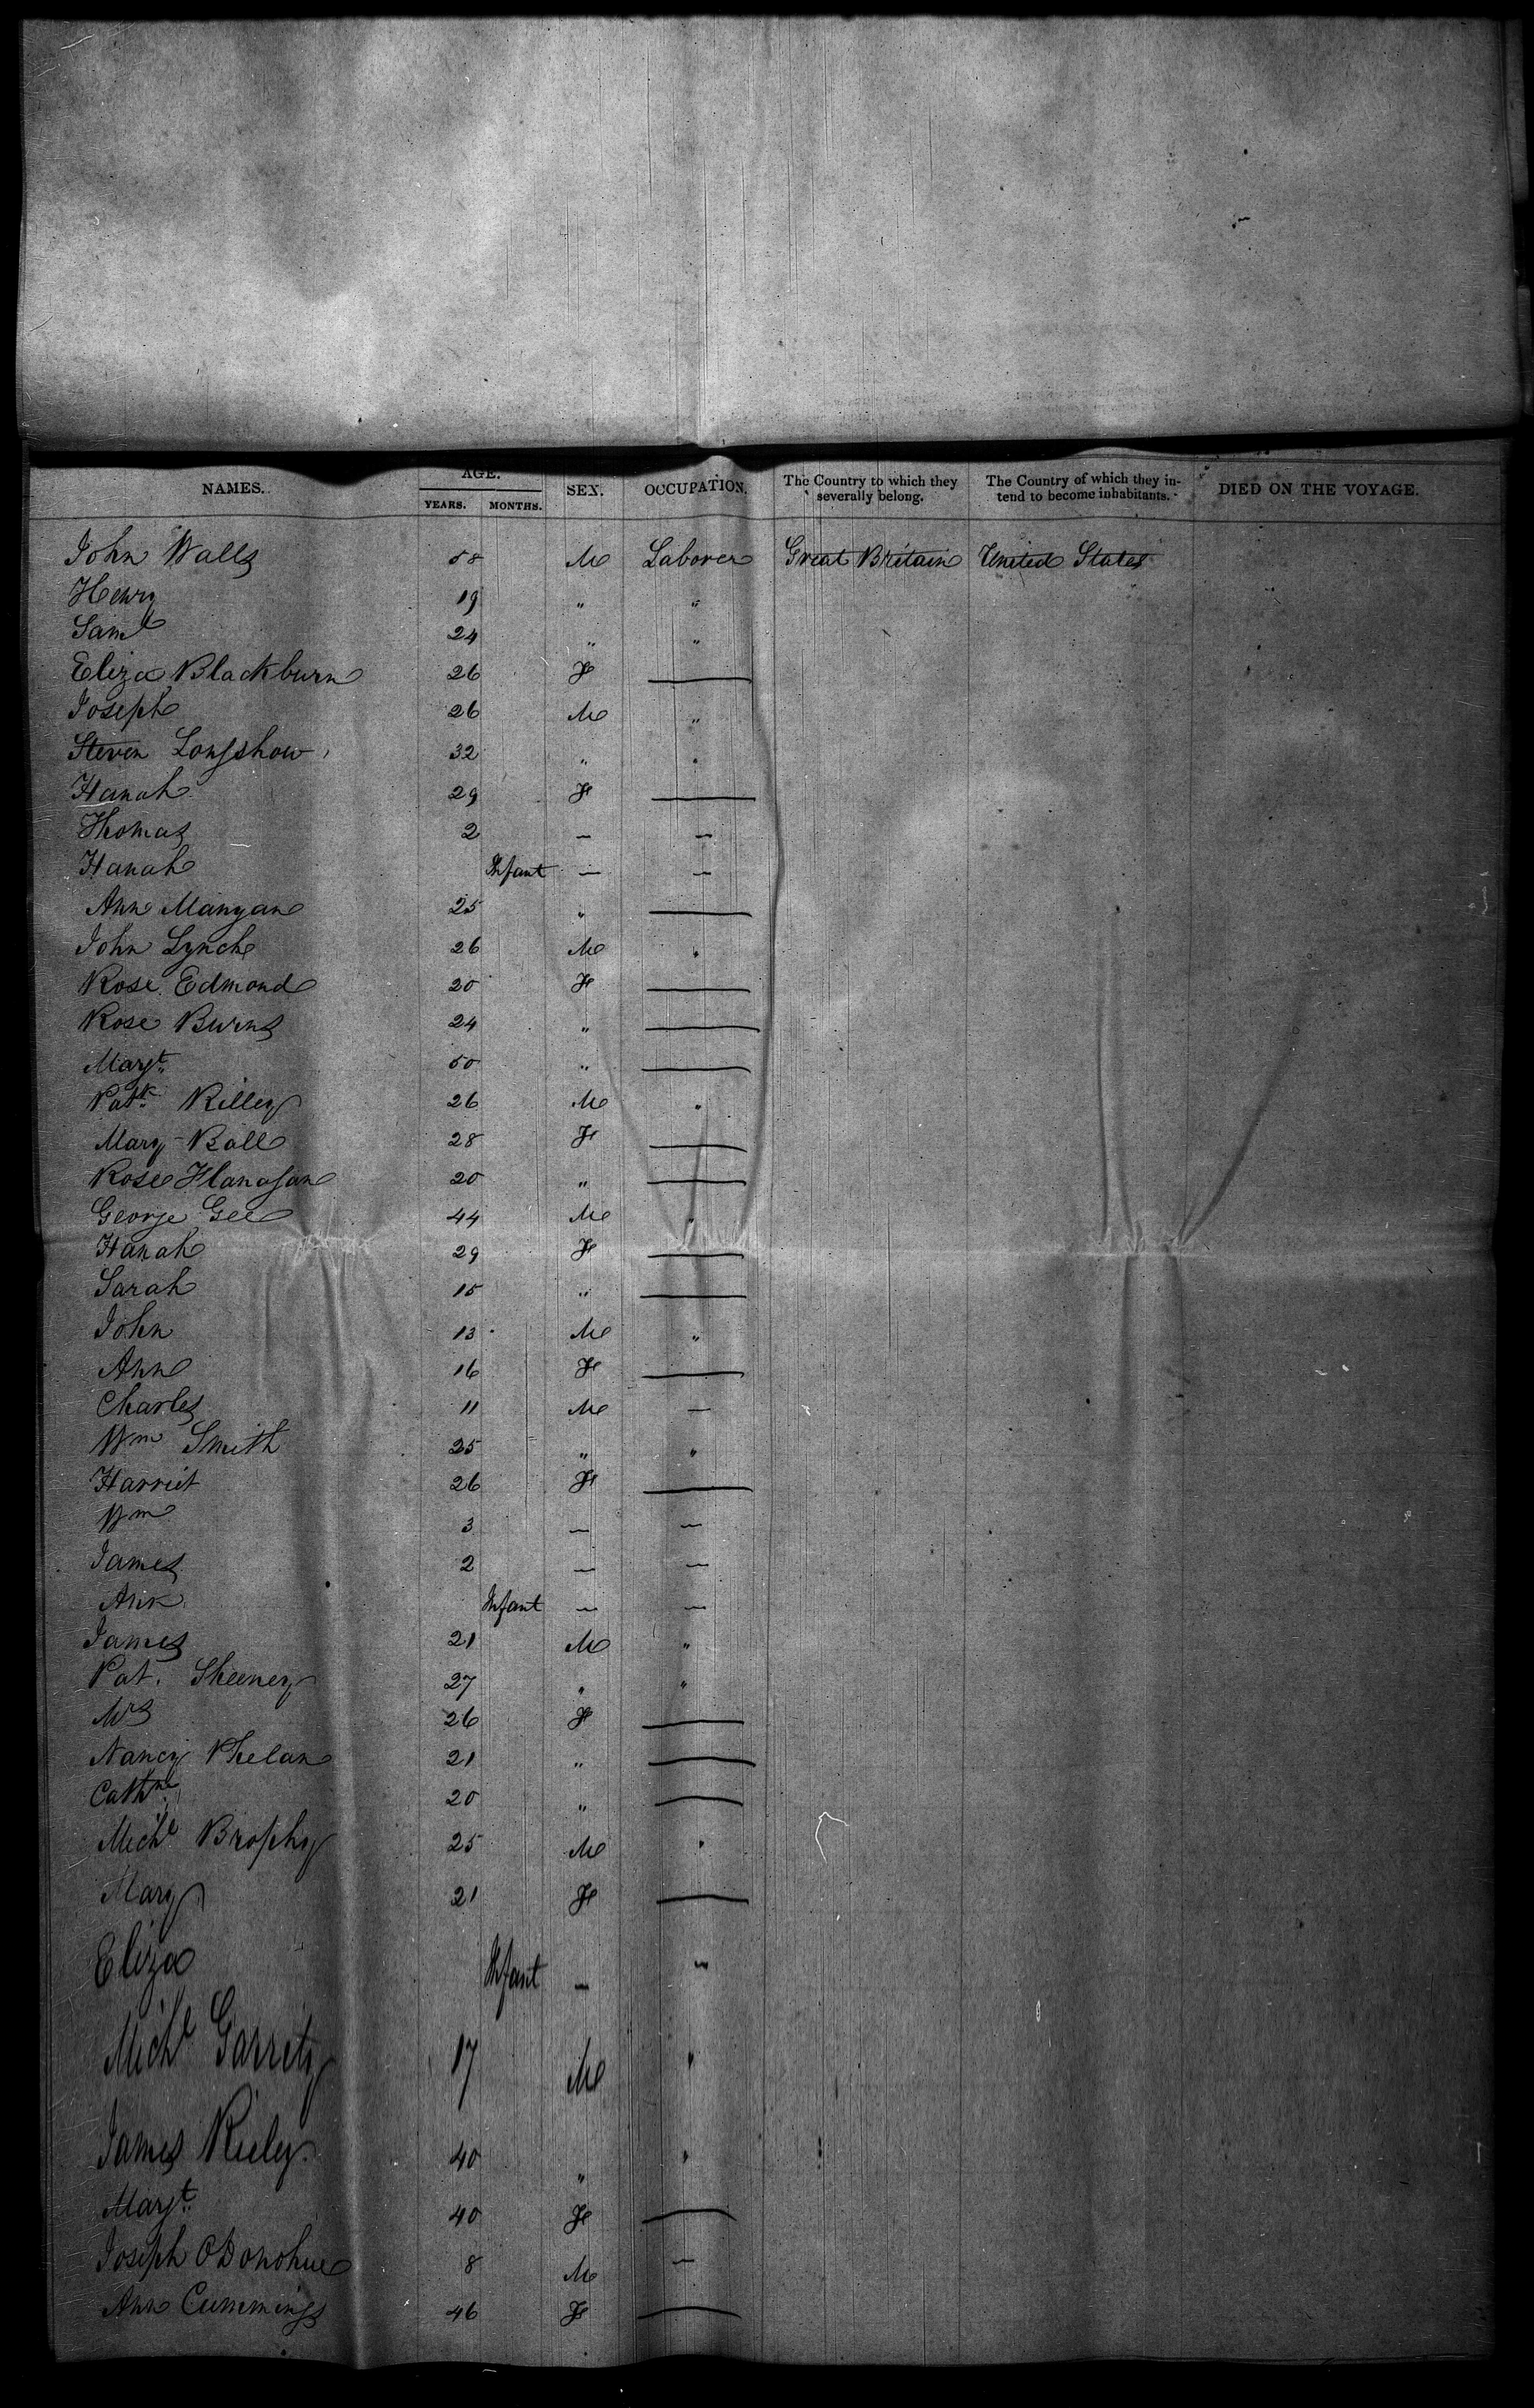 NAMES. AGE. SEX. OCCUPATION. The Country to which they severally belong. The Country of which they intend to become inhabitants. DIED ON THE VOYAGE.
YEARS. MONTHS.
John Walls 58 M Laborer Great Britain United States
Henry 19 " "
Saml 24 " "
Eliza Blackburn 26 F —
Joseph 26 M "
Steven Longshow 32 " "
Hanah 29 F —
Thomas 2 — —
Hanah Infant — —
Ann Mangan 25 " —
John Lynch 26 M "
Rose Edmond 20 F —
Rose Burns 24 " —
Margt. 50 " —
Patk. Rilley 26 M "
Mary Ball 28 F —
Rose Flanagan 20 " —
George Gee 44 M "
Hanah 29 F —
Sarah 15 " —
John 13 M "
Ann 16 F —
Charles 11 M —
Wm Smith 25 " "
Harriet 26 F —
Wm 3 — —
James 2 — —
Ann Infant — —
James 21 M "
Pat. Sheeney 27 " "
Mrs 26 F —
Nancy Phelan 21 " —
Cathne. 20 " —
Michl Brophy 25 M "
Mary 21 F —
Eliza Infant — —
Michl Garrety 17 M "
James Rieley 40 " "
Margt. 40 F —
Joseph ODonohue 8 M —
Ann Cummings 46 F —